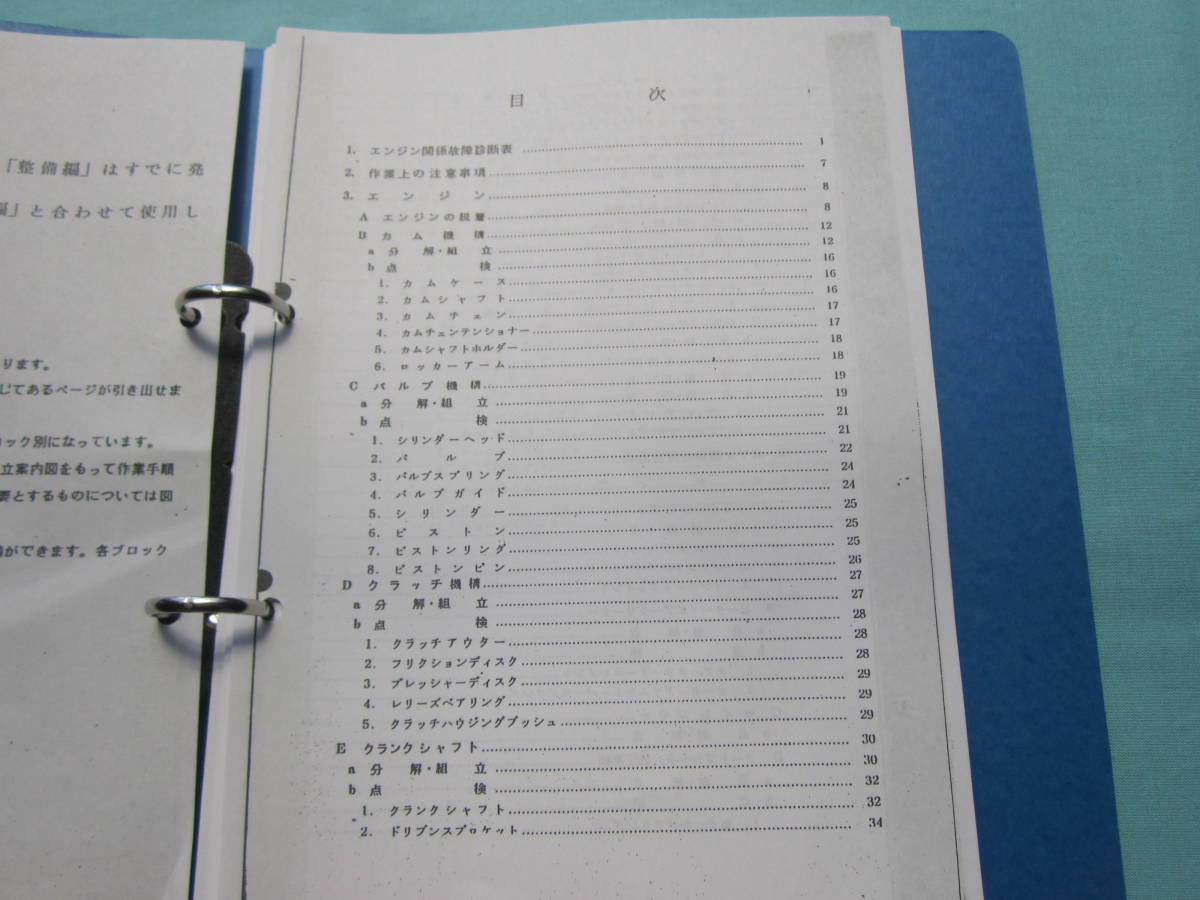 「整備編」はすでに発
編」と合わせて使用し
ります。
じてあるページが引き出せま
ロック別になっています。
立案内図をもって作業手順
要とするものについては図
ができます。各ブロック
目 次
1. エンジン関係故障診断表 1
2. 作業上の注意事項 7
3. エンジン 8
A エンジンの脱着 8
B カム機構 12
a 分解・組立 12
b 点検 16
1. カムケース 16
2. カムシャフト 16
3. カムチェン 17
4. カムチェンテンショナー 17
5. カムシャフトホルダー 18
6. ロッカーアーム 18
C バルブ機構 19
a 分解・組立 19
b 点検 21
1. シリンダーヘッド 21
2. バルブ 22
3. バルブスプリング 24
4. バルブガイド 24
5. シリンダー 25
6. ピストン 25
7. ピストンリング 25
8. ピストンピン 26
D クラッチ機構 27
a 分解・組立 27
b 点検 28
1. クラッチアウター 28
2. フリクションディスク 28
3. プレッシャーディスク 29
4. レリーズベアリング 29
5. クラッチハウジングブッシュ 29
E クランクシャフト 30
a 分解・組立 30
b 点検 32
1. クランクシャフト 32
2. ドリブンスプロケット 34